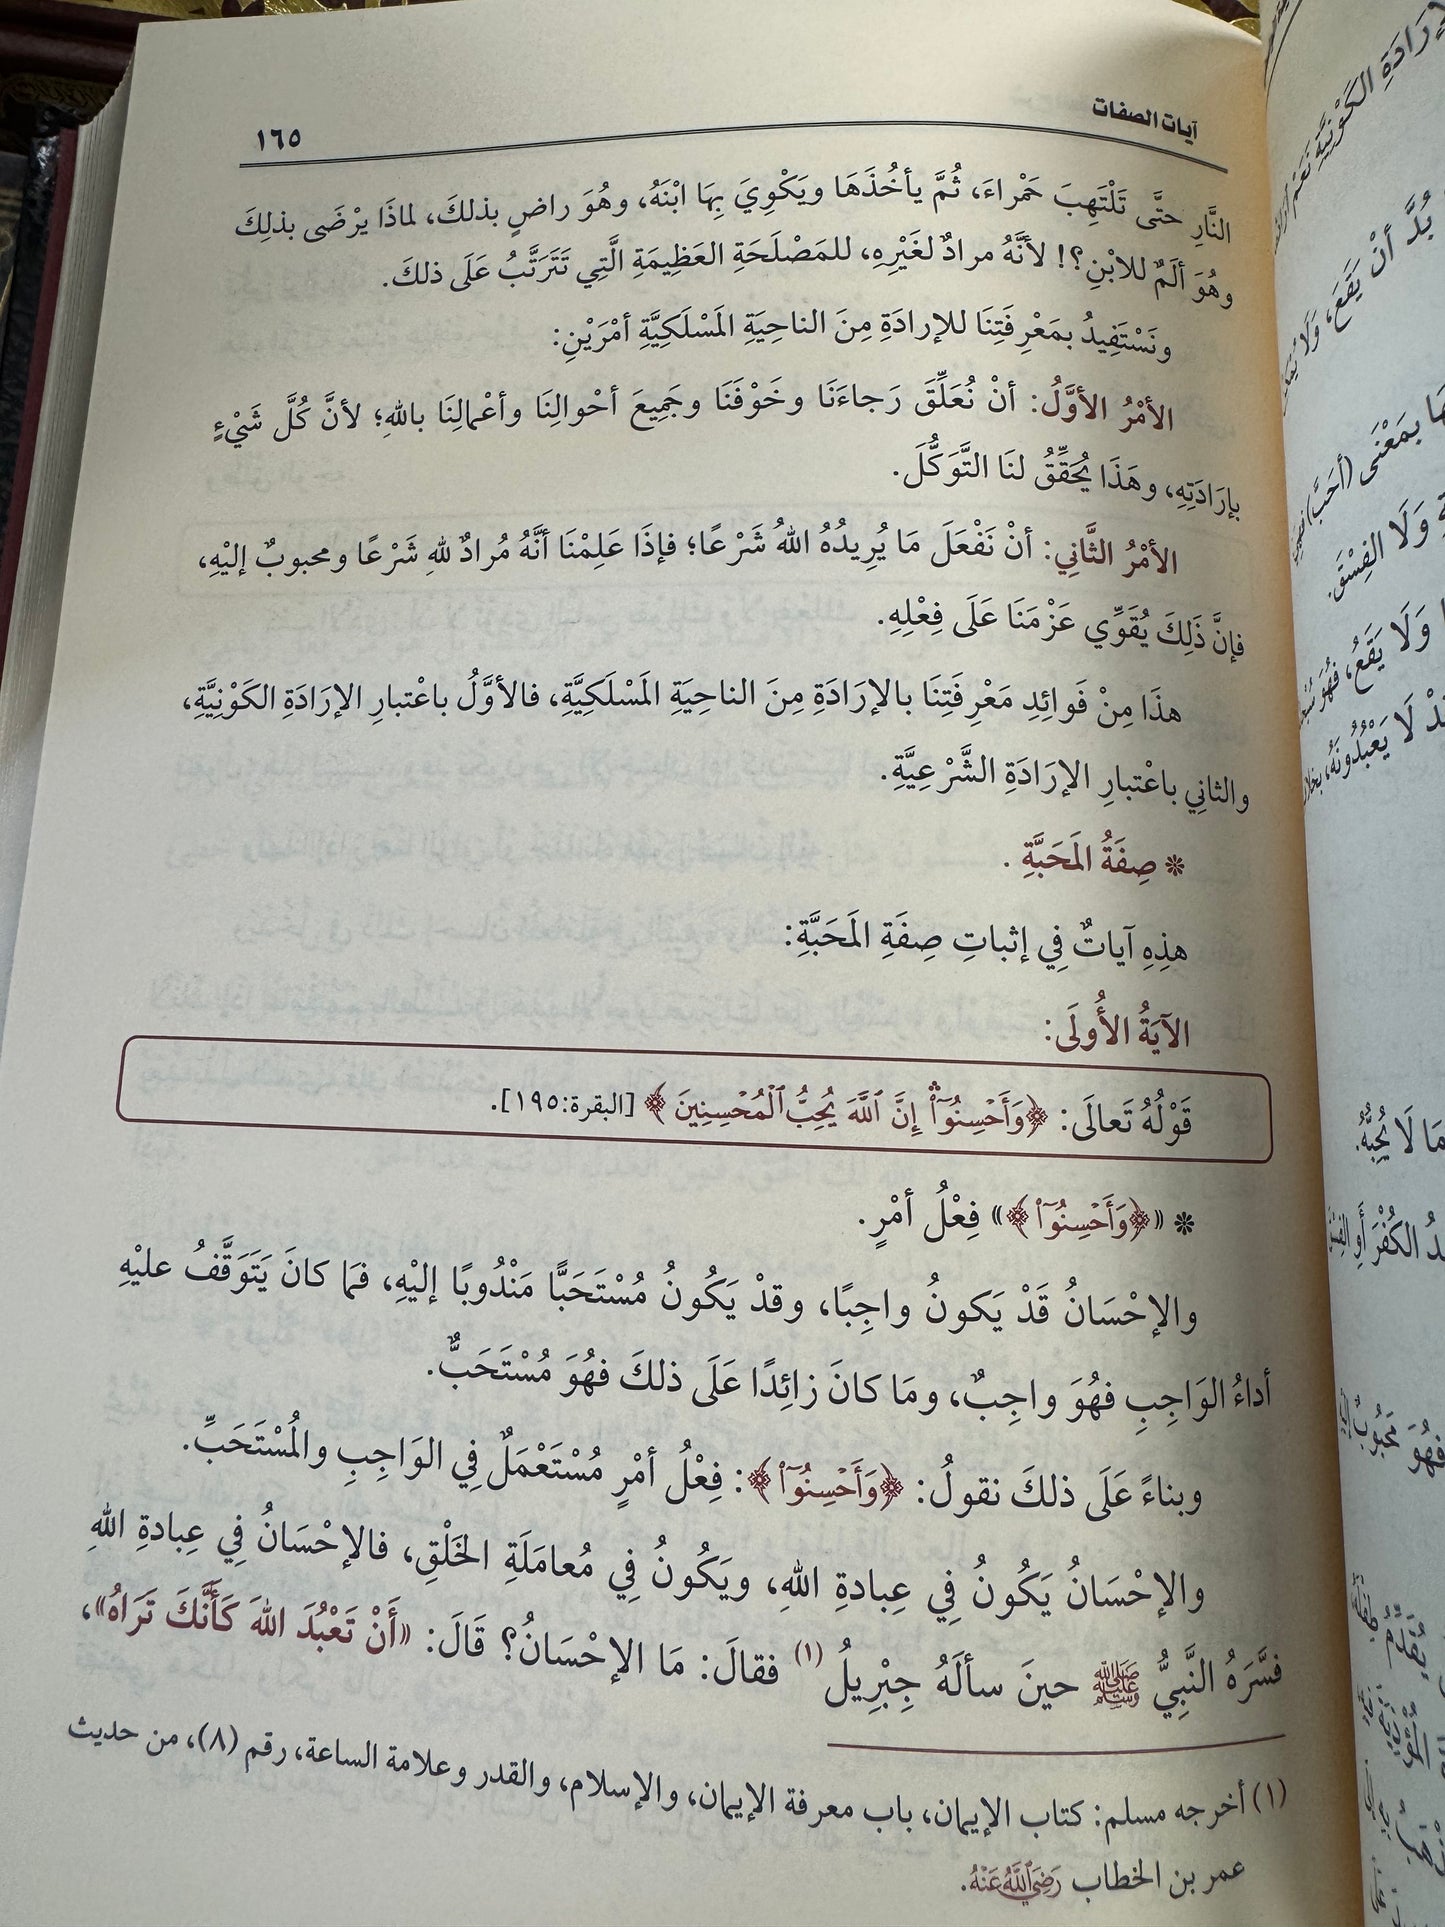 آيات الصفات
١٦٥
النَّارِ حتَّى تَلْتَهِبَ حَمْراءَ، ثُمَّ يأخُذَهَا ويَكْوِيَ بِهَا ابْنَهُ، وهُوَ راضٍ بذلكَ، لماذَا يرْضَى بذلِكَ
وهُوَ ألَمٌ للابْنِ؟! لأنَّهُ مرادٌ لغَيْرِهِ، للمَصْلَحَةِ العَظِيمَةِ الَّتِي تَتَرَتَّبُ عَلَى ذلكَ.
ونَسْتَفِيدُ بمَعْرِفَتِنَا للإرادَةِ مِنَ الناحِيَةِ المَسْلَكِيَّةِ أمْرَيْنِ:
الأمْرُ الأوَّلُ: أنْ نُعَلِّقَ رَجاءَنَا وخَوْفَنَا وجَمِيعَ أحْوالِنَا وأعْمالِنَا باللهِ؛ لأنَّ كُلَّ شَيْءٍ
بإرَادَتِهِ، وهَذَا يُحَقِّقُ لنَا التَّوَكُّلَ.
الأمْرُ الثَّانِي: أنْ نَفْعَلَ مَا يُرِيدُهُ اللهُ شَرْعًا؛ فإذَا عَلِمْنَا أنَّهُ مُرادٌ للهِ شَرْعًا ومحبوبٌ إليْهِ،
فإنَّ ذَلِكَ يُقَوِّي عَزْمَنَا عَلَى فِعْلِهِ.
هذَا مِنْ فَوائِدِ مَعْرِفَتِنَا بالإرَادَةِ مِنَ الناحِيَةِ المَسْلَكِيَّةِ، فالأوَّلُ باعْتبارِ الإرَادَةِ الكَوْنِيَّةِ،
والثانِي باعْتبارِ الإرَادَةِ الشَّرْعِيَّةِ.
❊ صِفَةُ المَحَبَّةِ .
هذِهِ آياتٌ فِي إثباتِ صِفَةِ المَحَبَّةِ:
الآيَةُ الأُولَى:
قَوْلُهُ تَعالَى: ﴿وَأَحْسِنُوٓا۟ ۛ إِنَّ ٱللَّهَ يُحِبُّ ٱلْمُحْسِنِينَ﴾ [البقرة:١٩٥].
❊ «﴿وَأَحْسِنُوٓا۟﴾» فِعْلُ أمْرٍ.
والإحْسَانُ قَدْ يَكونُ واجِبًا، وقدْ يَكُونُ مُسْتَحَبًّا مَنْدُوبًا إليْهِ، فمَا كانَ يَتَوَقَّفُ عليْهِ
أداءُ الوَاجِبِ فهُوَ واجِبٌ، ومَا كانَ زائِدًا عَلَى ذلكَ فهُوَ مُسْتَحَبٌّ.
وبناءً عَلَى ذلكَ نقولُ: ﴿وَأَحْسِنُوٓا۟﴾: فِعْلُ أمْرٍ مُسْتَعْمَلٌ فِي الوَاجِبِ والمُسْتَحَبِّ.
والإحْسَانُ يَكُونُ فِي عِبادةِ اللهِ، ويَكُونُ فِي مُعامَلَةِ الخَلْقِ، فالإحْسَانُ فِي عِبادةِ اللهِ
فسَّرَهُ النَّبِيُّ ﷺ حينَ سألَهُ جِبْرِيلُ (١) فقالَ: مَا الإحْسَانُ؟ قَالَ: «أَنْ تَعْبُدَ اللهَ كَأَنَّكَ تَرَاهُ»،
(١) أخرجه مسلم: كتاب الإيمان، باب معرفة الإيمان، والإسلام، والقدر وعلامة الساعة، رقم (٨)، من حديث
عمر بن الخطاب رَضِيَ ٱللَّهُ عَنْهُ.
لإرَادَةِ الكَوْنِيَّةِ
بُدَّ أنْ يَقَعَ، وَلَا
بِمَعْنَى (أحَبَّ)
وَلَا الفِسْقَ.
وَلَا يَقَعُ، فهُوَ
لَا يَعْبُدُونَهُ، بخلاف
مَا لَا يُحِبُّهُ.
الكُفْرَ أَو
فهُوَ مَحبُوبٌ